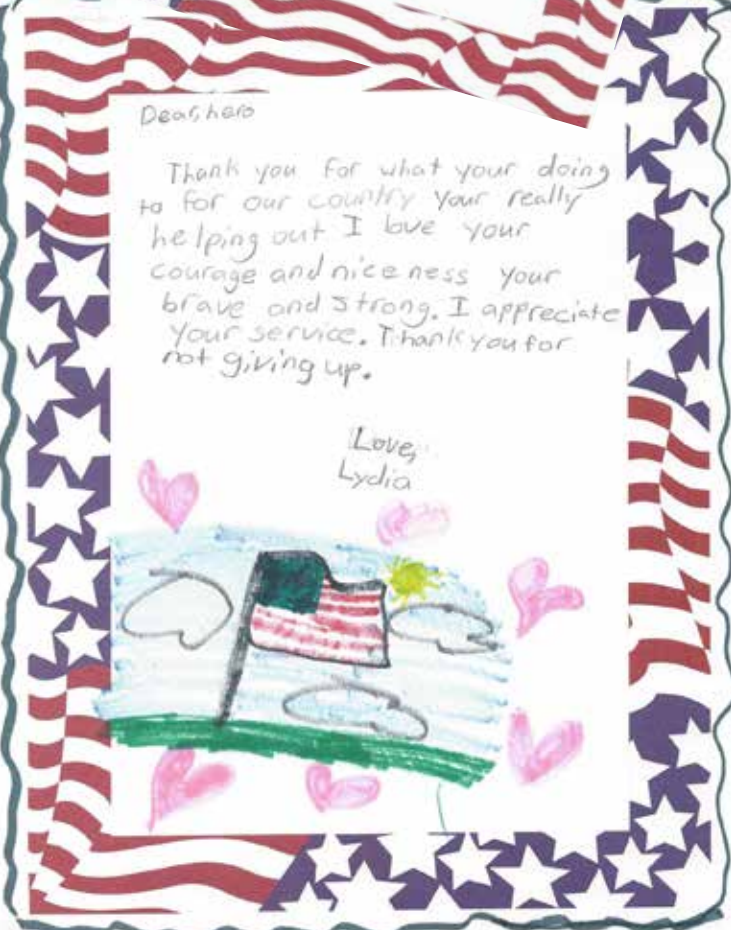 Dear, hero
Thank you for what your doing
to for our country your really
helping out I love your
courage and niceness your
brave and strong. I appreciate
your service. Thank you for
not giving up.
Love,
Lydia